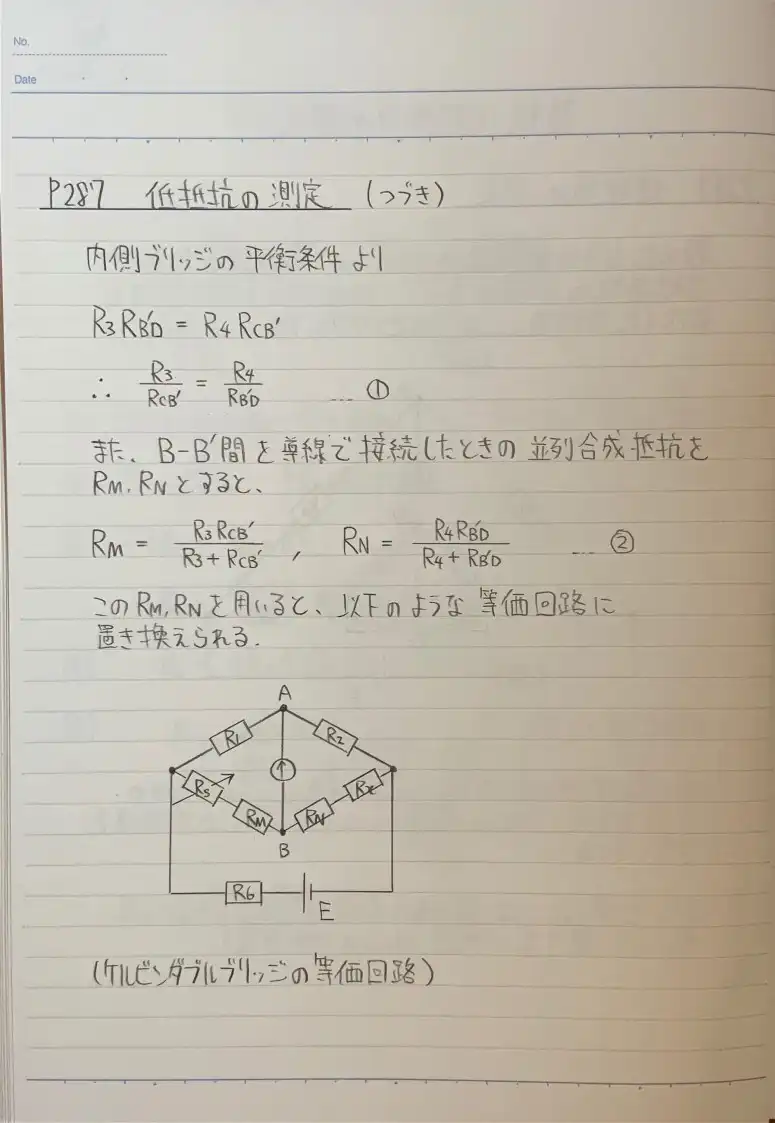 No.
Date
P287 低抵抗の測定 (つづき)
内側ブリッジの平衡条件より
R3 RB'D = R4 RCB'
∴ R3/RCB' = R4/RB'D … ①
また、B-B'間を導線で接続したときの並列合成抵抗を
RM, RNとすると、
RM = R3 RCB'/(R3 + RCB') , RN = R4 RB'D/(R4 + RB'D) … ②
このRM, RNを用いると、以下のような等価回路に
置き換えられる.
A
R1 R2
Rs RM RN Rx
B
R6 E
(ケルビンダブルブリッジの等価回路)